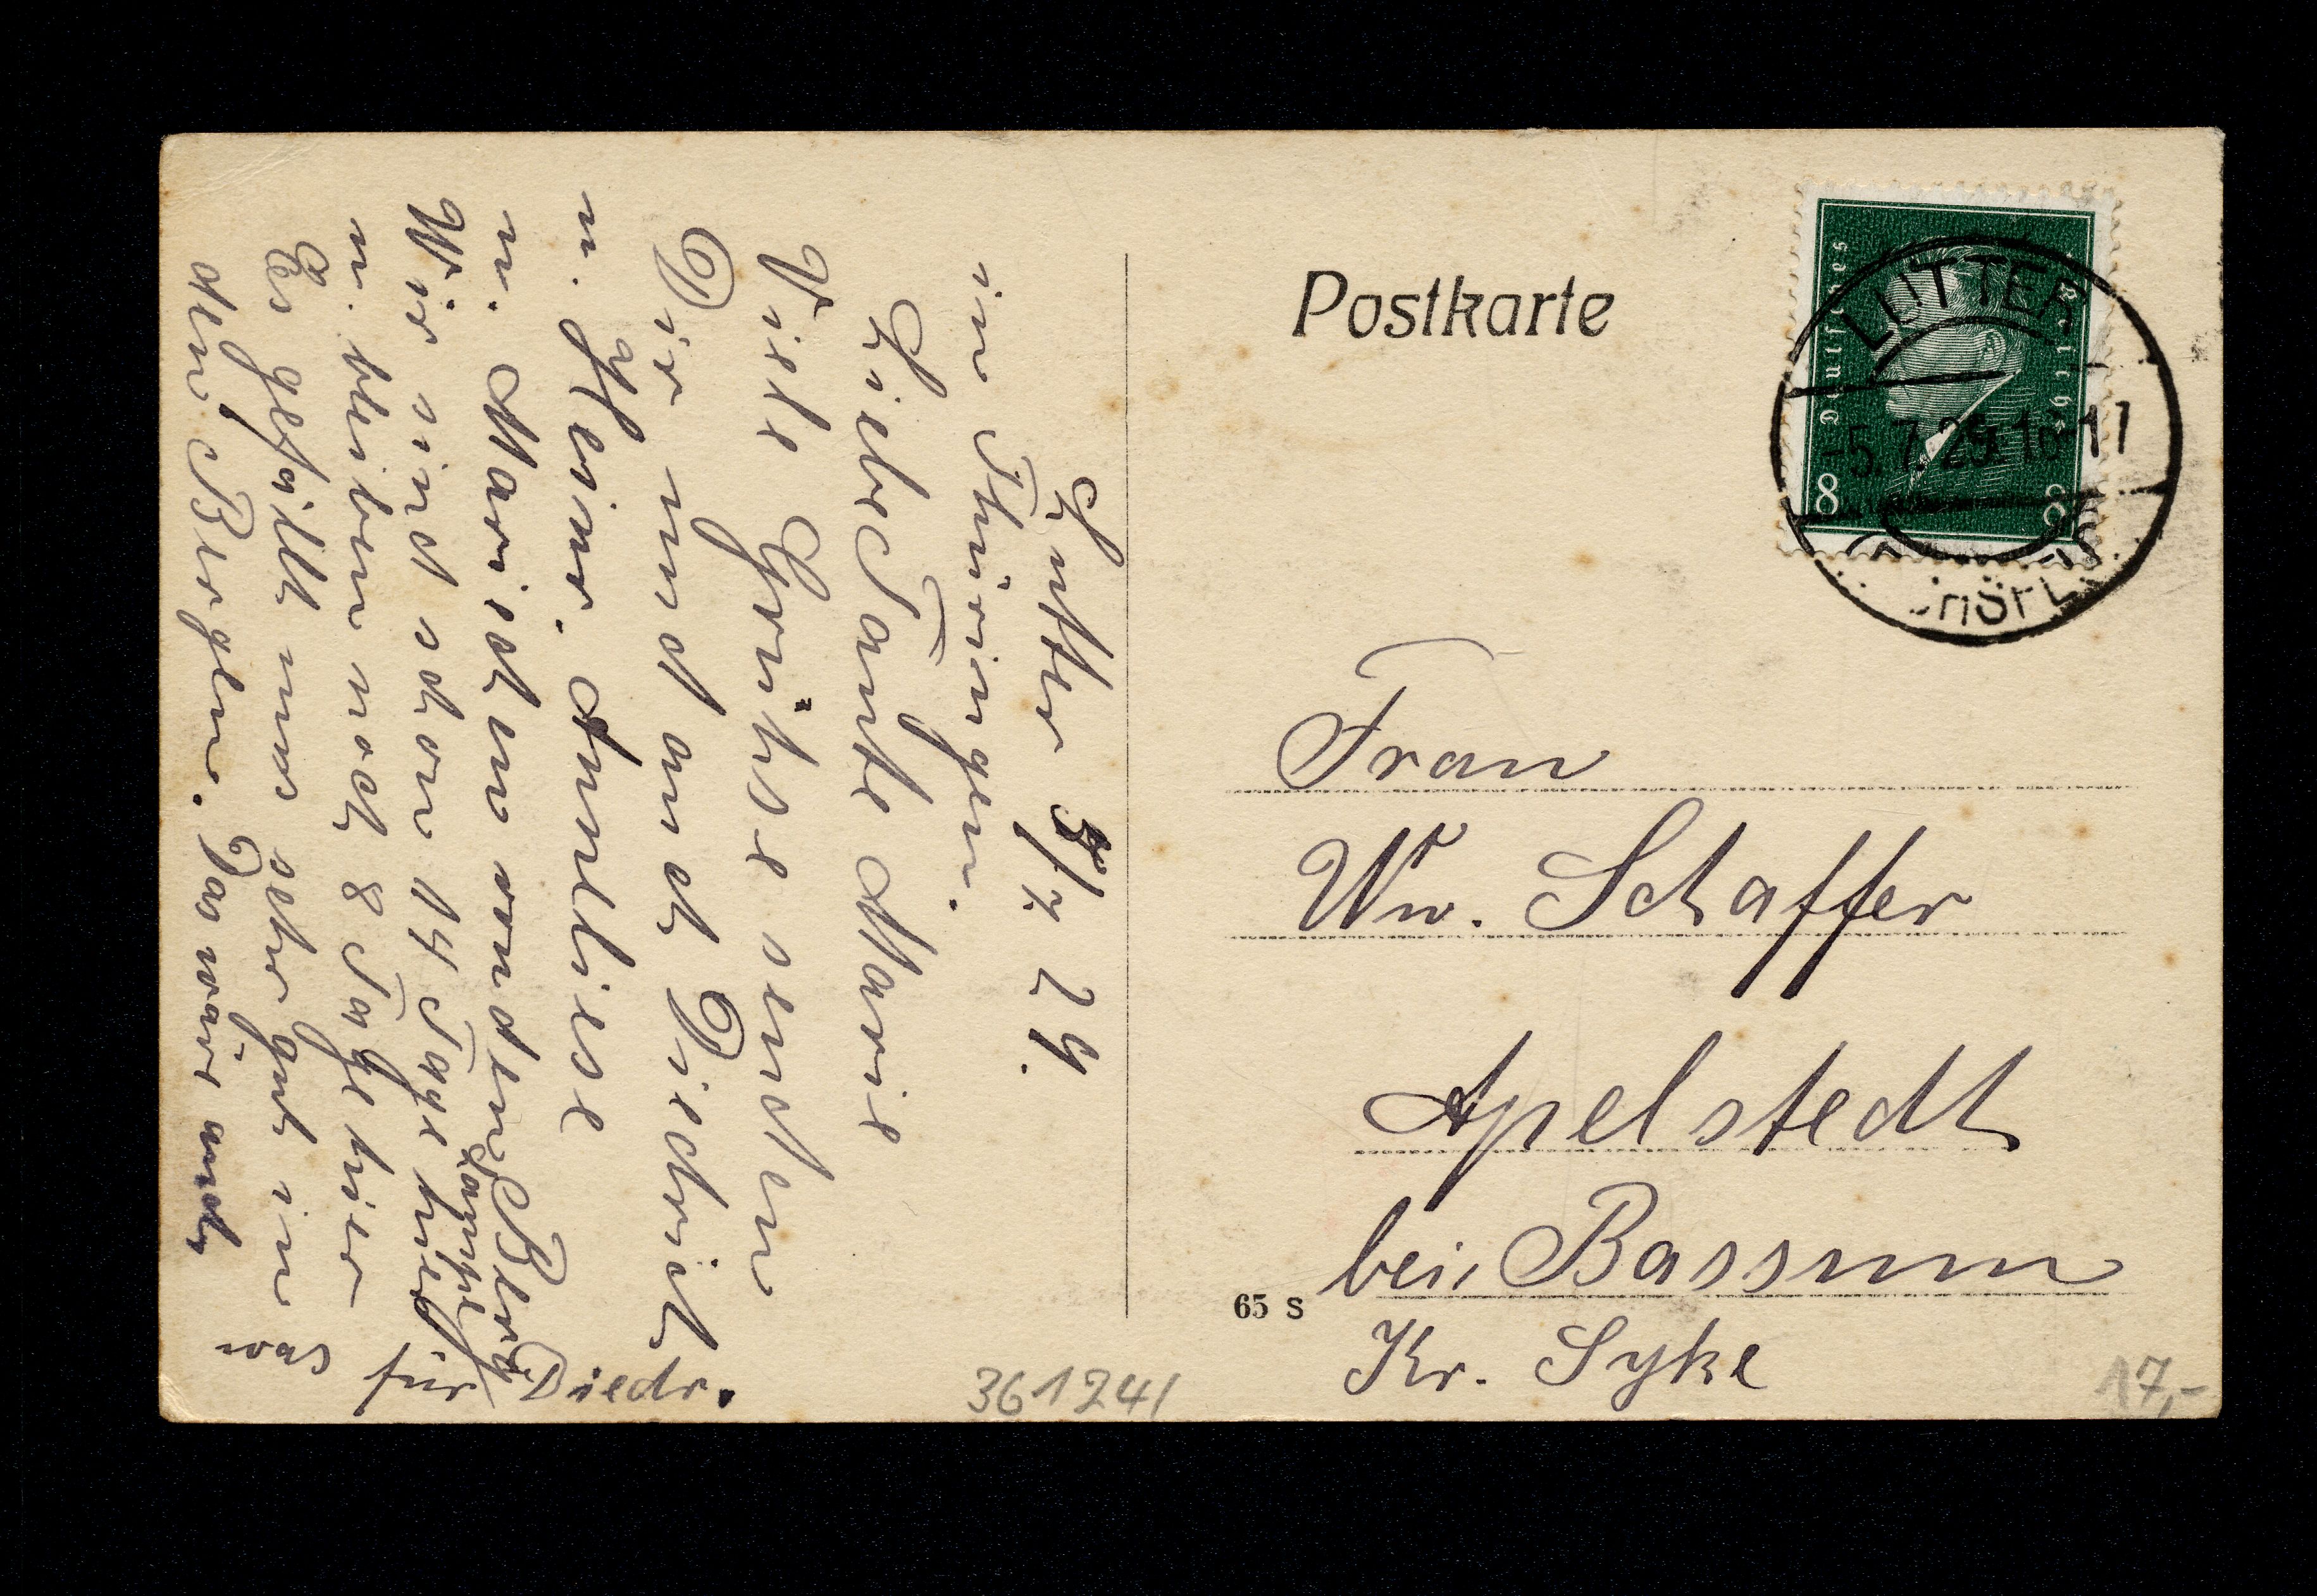 Lutter 5/7 29.
in Thüringen.
Liebe Tante Marie
Viele Grüße senden
Dir und auch Diedrich
u. Heinr. Anneliese
u. Mariechen von den Berg
Wir sind schon 14 Tage hier
u. bleiben noch 8 Tage hier
Es gefällt uns sehr gut in
den Bergen. Das wäre auch
was für Diedr.
Postkarte
Deutsches Reich
8 8
LUTTER
-5.7.29.16-17
Frau
Ww. Schaffer
Apelstedt
bei Bassum
Kr. Syke
65 S
361241
17,-